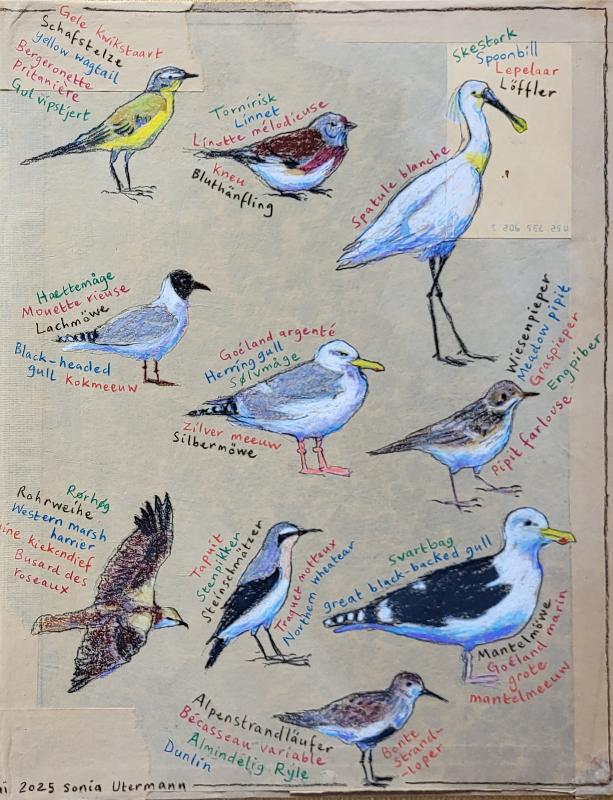 Gele Kwikstaart
Schafstelze
yellow wagtail
Bergeronette
pritanière
Gul vipstjert
Tornirisk
Linnet
Linotte mélodieuse
Kneu
Bluthänfling
Skestork
Spoonbill
Lepelaar
Löffler
Spatule blanche
Hættemåge
Mouette rieuse
Lachmöwe
Black-headed
gull Kokmeeuw
Goéland argenté
Herring gull
Sølvmåge
Zilver meeuw
Silbermöwe
Wiesenpieper
Meadow pipit
Graspieper
Engpiber
Pipit farlouse
Rørhøg
Rohrweihe
Western marsh
harrier
ine kiekendief
Busard des
roseaux
Tapuit
Stenpikker
Steinschmätzer
Traquet motteux
Northern wheatear
Svartbag
great black-backed gull
Mantelmöwe
Goéland marin
grote
mantelmeeuw
Alpenstrandläufer
Bécasseau variable
Almindelig Ryle
Dunlin
Bonte
Strand-
-loper
2025 Sonia Utermann